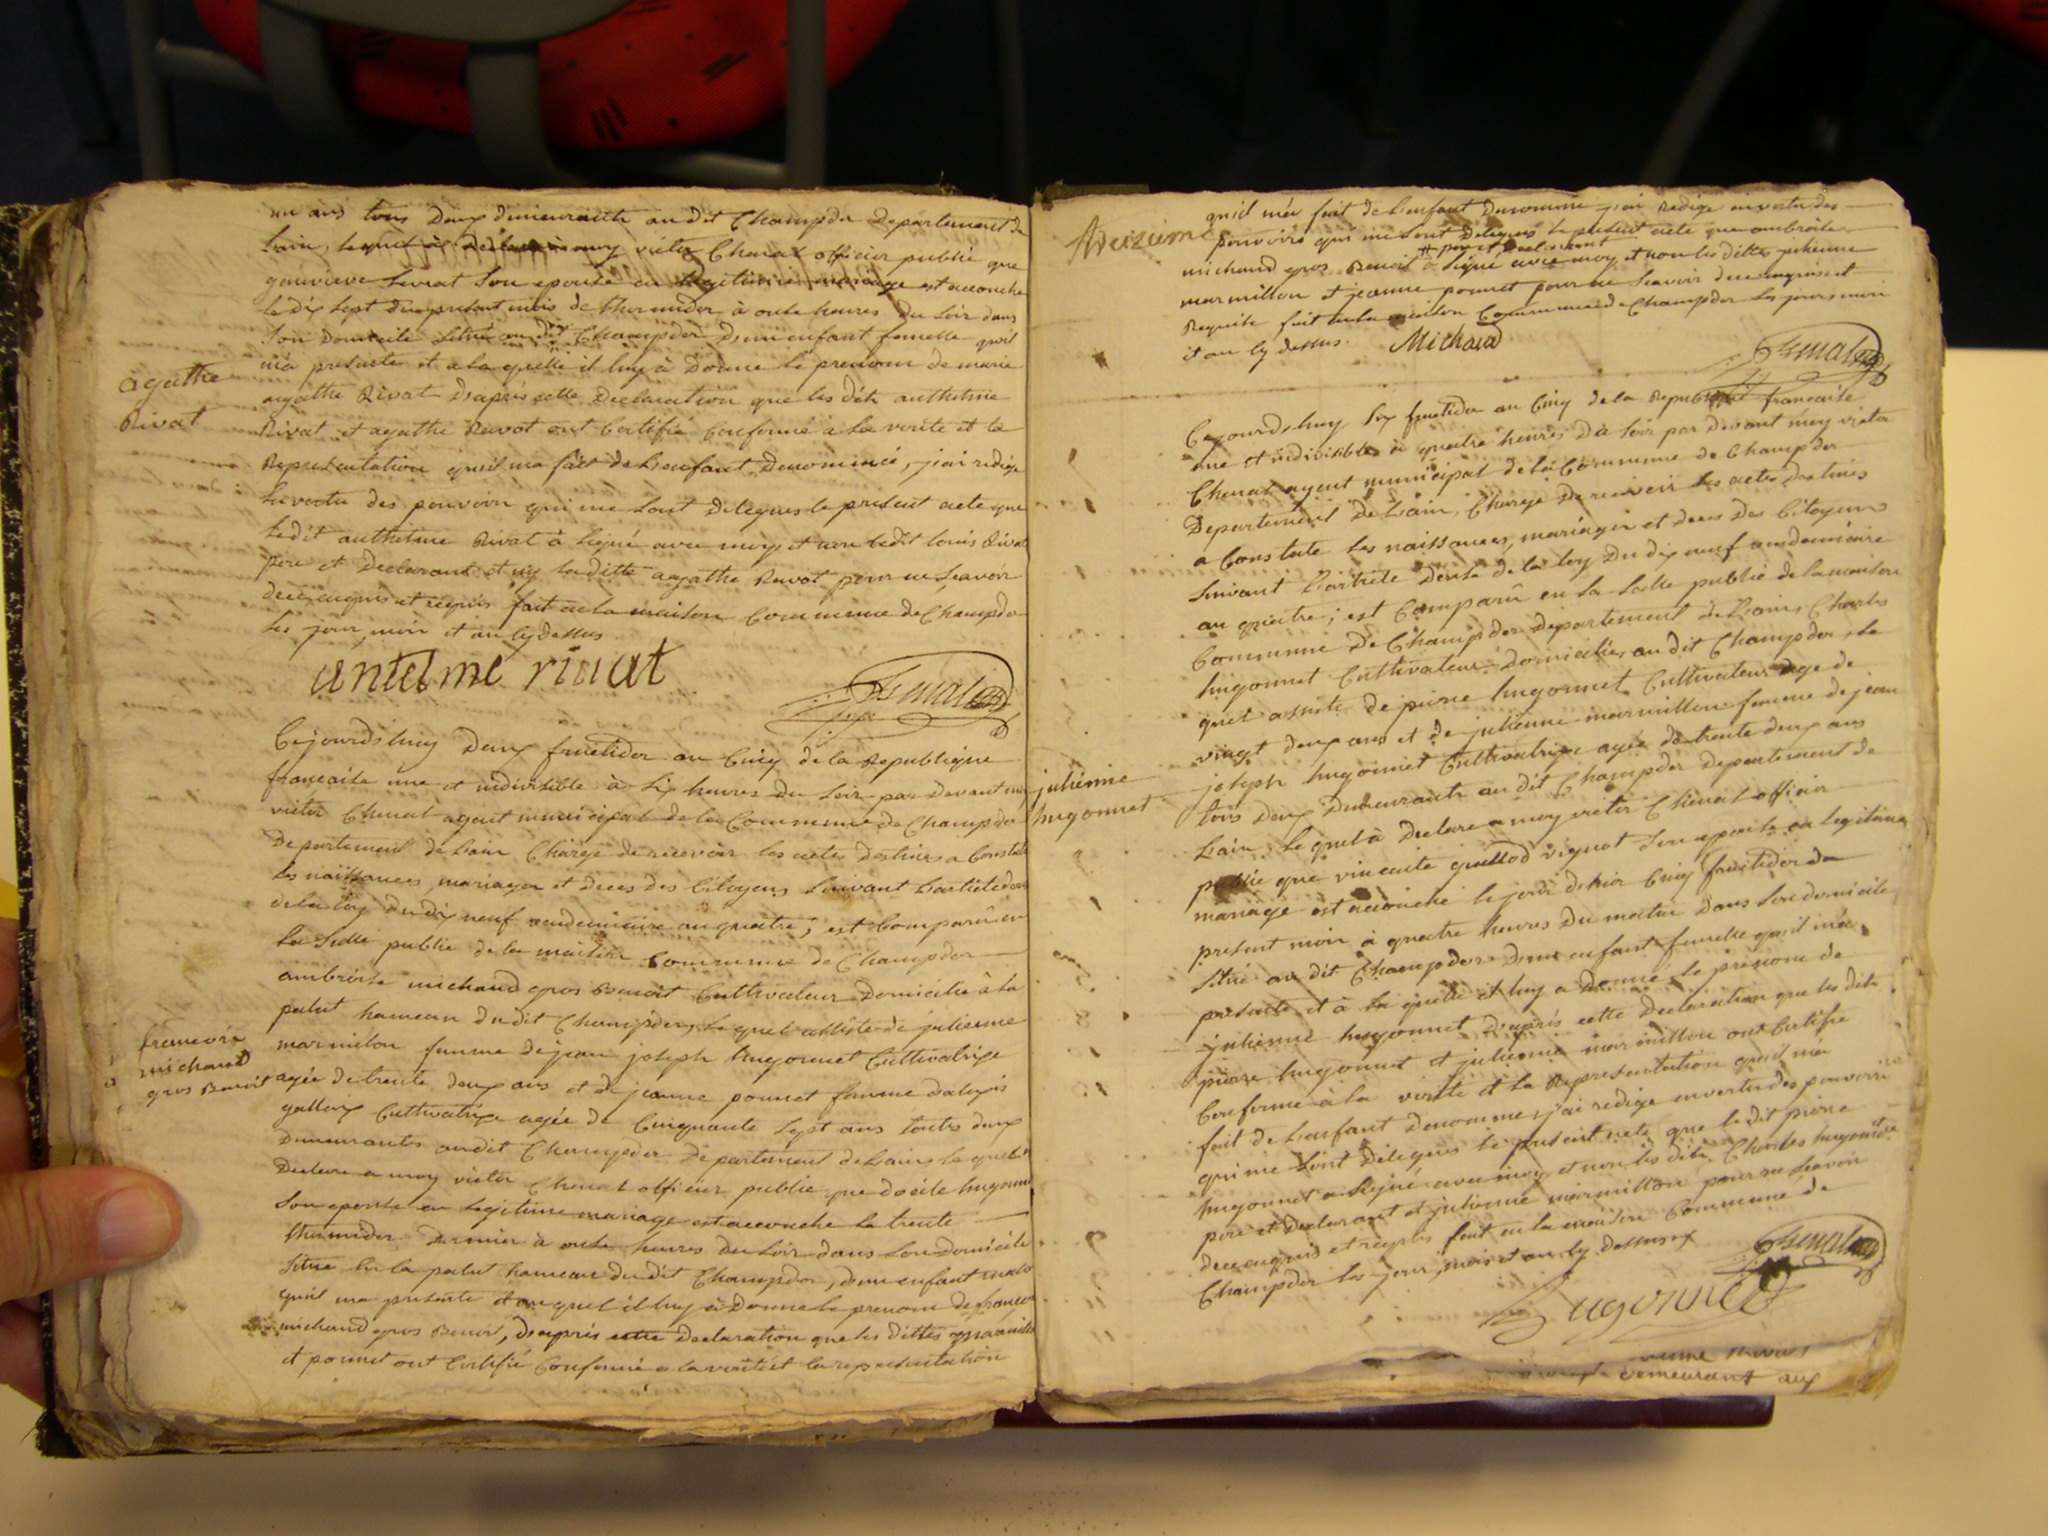 un ans tous Deux demeurants au dit Champdor Departement de
Lain, lequel à Declare a moy victor Chenat officier publié que
genvieve Savat Son epouse en legitime mariage est accouche
le dix Sept du present mois de thermidor à onse heures du Soir dans
Son Domicile Situé au dit Champdor Dun enfant femelle quil
m'a presente et a la quelle il luy à Donne le prenom de marie
agathe
Rivat
agathe Rivat Daprès cette Declaration que les dits anthelme
Rivat et agathe Ravot ont Certifié Conforme à La verite et la
Representation quil ma fait de L'enfant Denommé, j'ai redige
En vertu des pouvoirs qui me Sont Delegues le present acte que
Ledit anthelme Rivat à Signé avec moy et non ledit louis Rivat
pere et Declarant et ny laditte agathe Ravot pour ne Scavoir
de ce enquis et requis fait en la maison Commune de Champdor
Les jour, mois et an cy dessus
antelme rivat
Cejourdshuy Deux fructidor an Cinq de la Republique
francaise une et indivisible à Six heures du Soir par Devant moy
victor Chenat agent municipal de la Commune de Champdor
Departement de Lain Chargé de recevoir les actes Destines a Constate
Les naissances, mariages et deces des Citoyens Suivant L'article douse
de la loy du dix neuf vendemiaire an quatre; est Comparû en
La Salle publié de la maison Commune de Champdor
ambroise michaud gros Benoit Cultivateur Domicilié à la
palut hameau du dit Champdor, Le quel assiste de julienne
francois
michaud
gros Benoit
marmillon femme de jean joseph hugonnet Cultivatrixe
agée de trente deux ans et de jeanne ponnet femme dalexis
galloix Cultivatrixe agée de Cinquante Sept ans toutes deux
Demeurantes au dit Champdor Departement de Lain le quel à
Declare a moy victor Chenat officier publie que docile hugonnet
Son epouse en legitime mariage est accouche le trente
thermidor Dernier à onse heures du Soir dans Son Domicile
Situe En la palut hameau du dit Champdor, d'un enfant male
quil ma presente et au quel il luy à Donne le prenom de francois
michaud gros Benoit, Daprès cette Declaration que les dittes marmillon
et ponnet ont Certifié Conforme a la verité et la representation
quil m'a fait de L'enfant Denommé jai Redige en vertu des
pouvoirs qui me Sont Delegues le present acte que ambroise
# pere et Declarant
michaud gros Benoit # à Signé avec moy et non les dittes julienne
marmillon et jeanne ponnet pour ne Scavoir de ce enquis et
Requise fait en la maison Commune de Champdor Les jour mois
et an cy dessus.
Michaud
Cejourdshuy Six fructidor an Cinq de la Republique francaise
une et indivisible à quatre heures du Soir par Devant moy victor
Chenat agent municipal de la Commune de Champdor
Departement de Lain, Chargé De recevoir les actes destines
a Constate Les naissances, mariages et deces des Citoyens
Suivant L'article dense de la loy du dix neuf vendemiaire
an quatre; est Comparû en la Salle publié de la maison
Commune de Champdor departement de Lain, Charles
hugonnet Cultivateur Domicilié, au dit Champdor, Le
quel assiste de pierre hugonnet Cultivateur age de
vingt deux ans et de julienne marmillon femme de jean
julienne
hugonnet
joseph hugonnet Cultivatrixe agée de trente deux ans
tous Deux Demeurants au dit Champdor Departement de
Lain, Le quel à Declare a moy victor Chenat officier
publié que vincente guillod vignot Son epouse en legitime
mariage est accouche le jour d'hier Cinq fructidor du
present mois à quatre heures du matin dans Son domicile
Situe au dit Champdor Dun enfant femelle quil m'a
presente et à la quelle il luy a Donné le prenom de
julienne hugonnet, Daprès cette Declaration que les dits
pierre hugonnet et julienne marmillon ont Certifie
Conforme à la verite et la Representation quil m'a
fait de L'enfant Denomme, j'ai redige en vertu des pouvoirs
qui me Sont Delegues le present acte que le dit pierre
hugonnet a Signé avec moy et non les dits Charles hugonnet
pere et Declarant et julienne marmillon pour ne Scavoir
de ce enquis et requis fait en la maison Commune de
Champdor Les jour, mois et an cy dessus
hugonnet
demeurant aux